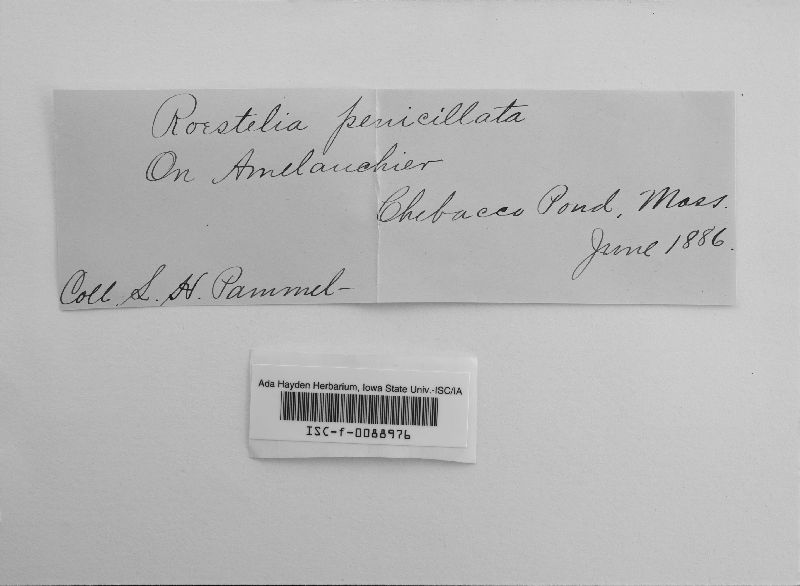 Roestelia penicillata
On Amelanchier
Chebacco Pond, Mass.
June 1886.
Coll. L. H. Pammel-
Ada Hayden Herbarium, Iowa State Univ.-ISC/IA
ISC-f-0088976